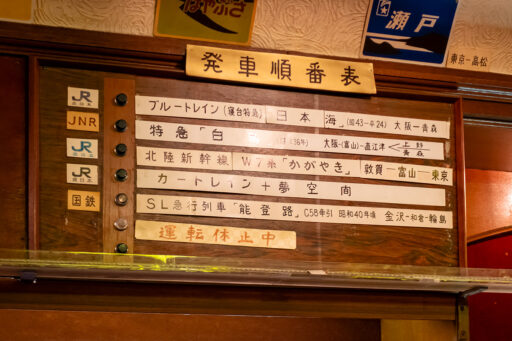 はやぶさ
瀬戸
東京―高松
発車順番表
JR ブルートレイン(寝台特急)「日本海」(昭43―H24) 大阪―青森
JNR 特急「白 大阪―(富山)―直江津 上野 青森
JR 北陸新幹線 W7系「かがやき」 敦賀―富山―東京
JR カートレイン+夢空間
国鉄 SL急行列車「能登路」 C58牽引 昭和40年頃 金沢―和倉―輪島
運転休止中